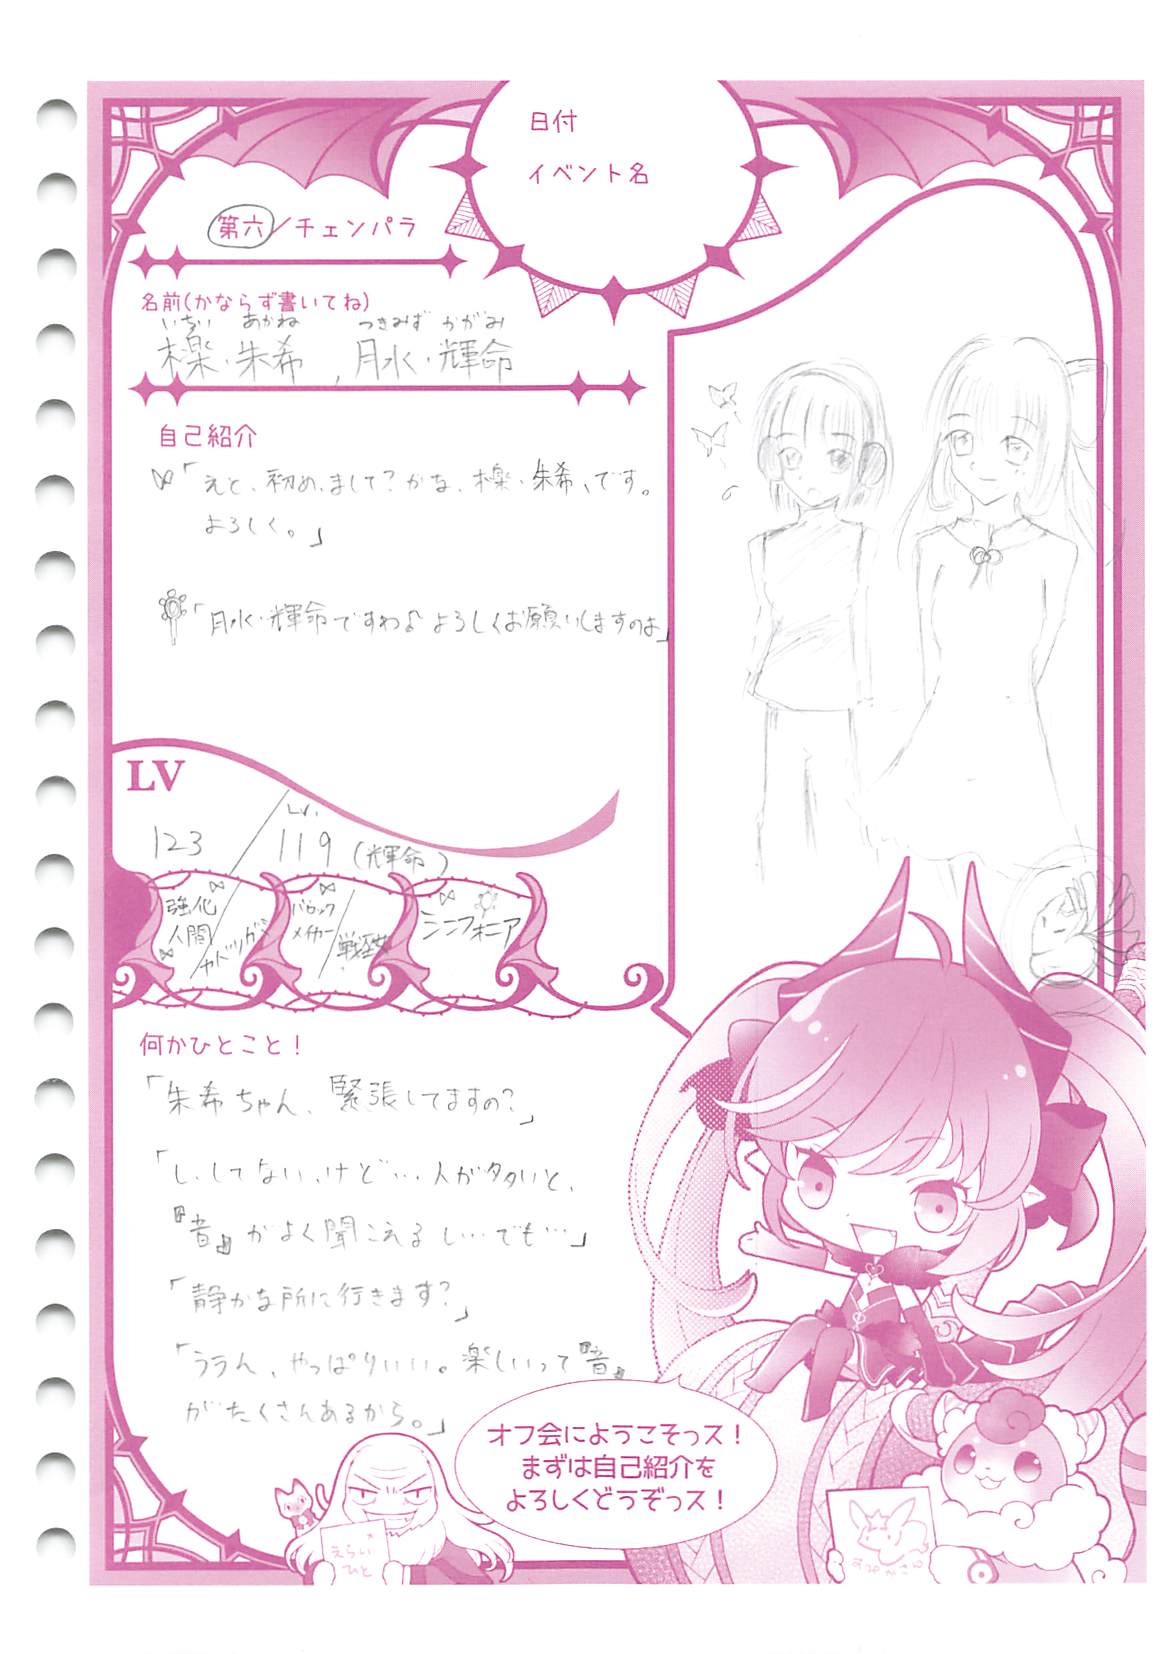 日付
イベント名
第六/チェンパラ
名前(かならず書いてね)
いちい あかね つきみず かがみ
檪・朱希、月水・輝命
自己紹介
「えと、初め、まして?かな、檪・朱希、です。
よろしく。」
「月水・輝命ですわ♪よろしくお願いしますのよ」
LV
Lv.
123 / 119 (輝命)
強化人間 / バロックメイカー / シンフォニア
戦巫女
何かひとこと!
「朱希ちゃん、緊張してますの?」
「し、してない、けど…人が多いと、
『音』がよく聞こえるし…でも…」
「静かな所に行きます?」
「ううん、やっぱりいい。楽しいって『音』
がたくさんあるから。」
オフ会にようこそっス!
まずは自己紹介を
よろしくどうぞっス!
えらい
ひと